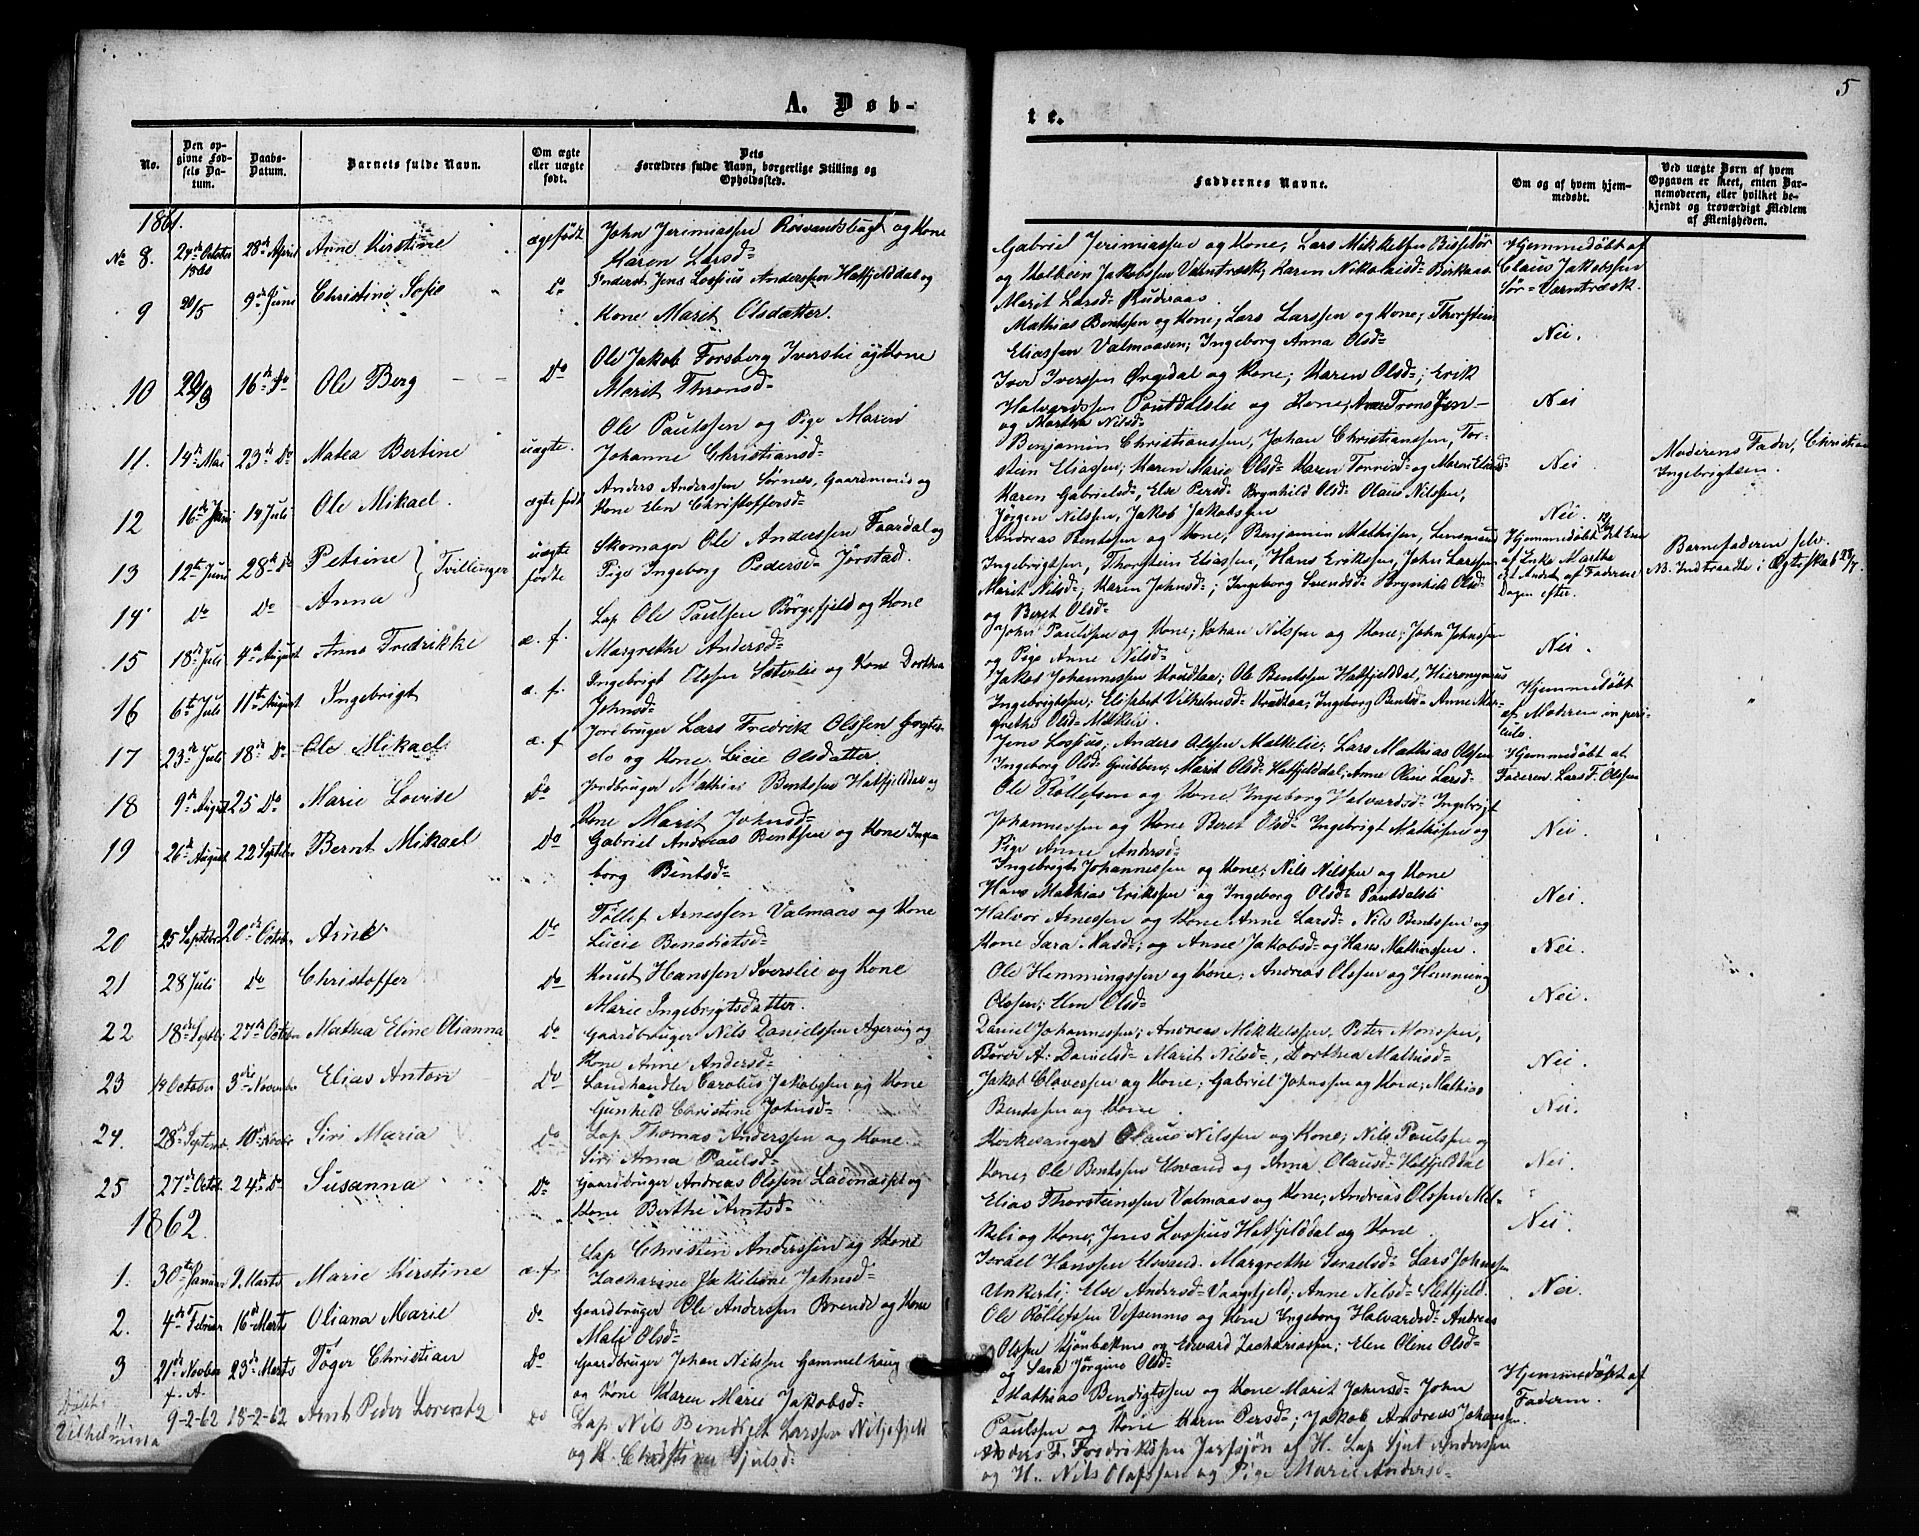 5
A. Døb-
te.
No.
Den op-
givne Fød-
sels Da-
tum.
Daabs-
Datum.
Barnets fulde Navn.
Om ægte
eller uægte
født.
Dets
Forældres fulde Navn, borgerlige Stilling og
Opholdssted.
Faddernes Navne.
Om og af hvem hjem-
medøbt.
Ved uægte Børn af hvem
Opgaven er skeet, enten Bar-
nemoderen, eller hvilket be-
kjendt og troværdigt Medlem
af Menigheden.
1861.
No 8. 24de October 1860 28de April Anne Kirstine ægefødt John Jerimiassen Røsvandsbugt og Kone
Karen Larsd=
Gabriel Jerimiassen og Kone, Lars Mikkelsen
og Jakobsen Varntræsk, Karen Nikolaisd=
Marit Larsd=
Hjemmedøbt af
Claus Jakobssen
Sør-Varntræsk.
9 20/5 9de Juni Christine Sofie Do Jens Lossius Anderssen Hatfjelddal og
Kone Marit Olsdatter.
Mathias Bentssen og Kone, Lars Larssen og Kone, Thorstein
Eliassen Valmaasen; Ingeborg Anna Olsd=
Nei.
10 16de Do Ole Berg Do Ole Jakob Forsberg Iverslie og Kone
Marit Thronsd=
Iver Iverssen Ørjedal og Kone; Karen Olsd=; Erik
Halvardssen Pantdalslie og Kone,
og Martha Nilsd=
Nei
11. 14de Mai 23de Do Matea Bertine uægte. Ole Paulssen og Pige Maren
Johanne Christiansd=
Benjamin Christianssen, Johan Christianssen, Tor-
stein Eliassen; Karen Marie Olsd= Karen
Nei
Moderens Fader, Christian
Ingebrigtsen.
12 16de Juni 14 Juli Ole Mikael. ægte født Anders Anderssen Sørnes, Gaardmand og
Kone Elen Christoffersd=
Karen Gabrielsd=, Else Persd= Brynhild Olsd= Olaus Nilssen,
Jørgen Nilssen, Jakob Jakobssen
Nei.
13 12te Juni 28de Do Petrine } Tvillinger uægte
fødte Skomager Ole Anderssen Faardal og
Pige Ingeborg Pedersd= Jørstad.
14 Do Do Anna
Andreas Bentssen og Kone, Benjamin Mathisen, Lensmand
Ingebrigtsen, Thorstein Eliassen, Hans Erikssen, John Larssen
Marit Nilsd=, Karen Johnsd=; Ingeborg Svendsd= Brynhild Olsd=
og Beret Olsd=
Hjemmedøbt det Ene
af Enke Martha
det Andet af Faderen
Dagen efter.
Barnefaderen selv.
NB. Indtraadte i Ægteskab 28/7.
15 18de Juli 4de August Anna Fredrikke æ. f. Lap Ole Paulsen Børgefjeld og Kone
Margrethe Andersd=
John Paulssen og Kone; Johan Nilssen og Kone; John Johnssen
og Pige Anne Nilsd=
Nei.
16 6te Juli 11te August Ingebrigt æ. f. Ingebrigt Olssen Sæterlie og Kone Dorthea
Johnsd=
Jakob Johannessen Krudtaa; Ole Bentssen Hatfjelddal, Hieronymus
Ingebrigtsen; Elisabet Vilhelmsd= Krudtaa, Ingeborg Bentsd= Anne Mar-
grethe Olsd=
Hjemmedøbt
af Mohren in peri-
culo.
17 23de Juli 18de Do Ole Mikael. æ. f Jordbruger Lars Fredrik Olssen
og Kone Licie Olsdatter.
Jens Lossius; Anders Olssen Mikkelie; Lars Mathias Olssen
Ingeborg Olsd= Grubben, Marit Olsd= Hatfjelddal; Anne Oline Larsd=
Hjemmedøbt af
Faderen Lars F. Olssen
18 9de August 25 Do Marie Lovise Do Jordbruger Mathias Bentssen Hatfjelddal og
Kone Marit Johnsd=
Ole Rølleffsen og Kone Ingeborg Halvardsd= Ingebrigt
Johannessen og Kone Beret Olsd= Ingebrigt Mathisen og
Pige Anne Andersd=
Nei.
19 26de August 22 Septbr Bernt Mikael Do Gabriel Andreas Bentssen og Kone Inge-
borg Bentsd=
Ingebrigt Johannessen og Kone; Nils Nilssen og Kone
Hans Mathias Erikssen og Ingeborg Olsd= Pantdalsli
Nei.
20 25 Septebr 20de Octobr Arne Do Tollef Arnessen Valmaas og Kone
Lucie Benedictsd=
Halvor Arnessen og Kone Anne Larsd= Nils Bentssen og
Kone Sara Masd=; og Anne Jakobsd= og Hans Mathiassen.
Nei.
21 28 Juli Do Christoffer Do Knut Hanssen Iverslie og Kone
Marie Ingebrigtsdatter.
Ole Hemmingssen og Kone; Andreas Olssen og Hemming
Olssen; Elen Olsd=
Nei.
22 18de Septb 27de October Mathea Eline Olianna Do Gaardbruger Nils Danielssen Agervig og
Kone Anne Andersd=
Daniel Johannessen; Andreas Mikkelssen, Peter Monssen,
A. Danielsd= Marit Nilsd=, Dorthea Mathisd=
Nei.
23 19 October 3die November Elias Anton Do Landhandler Carolus Jakobssen og Kone
Gunhild Christine Johnsd=
Jakob Clavessen og Kone; Gabriel Johnssen og Kone; Mathias
Bentssen og Kone.
Nei.
24. 28de Septembr 10de Novbr Siri Maria Do Lap Thomas Anderssen og Kone
Siri Anna Paulsd=
Kirkesanger Olaus Nilssen og Kone; Nils Paulssen og
Kone, Ole Bentssen Elsvand og Anna Olausd= Hatfjelddal
Nei.
25 27de Octob. 24de Do Susanna Do Gaardbruger Andreas Olssen Ladonæsset og
Kone Berthe Arntsd=
Elias Thorsteinssen Valmaas og Kone; Andreas Olssen Mik-
keli og Kone, Jens Lossius Hatfjelddal og Kone
Nei.
1862
1. 30te Januar 9. Marts Marie Kirstine æ. f. Lap Christen Anderssen og Kone
Zacharine Jakobine Johnsd=
Israel Hanssen Elsvand. Margrethe Israelsd= Lars Johnssen
Unkerli; Else Andersd= Vaagfjeld; Anne Nilsd= Sletfjeld.
Nei.
2. 4de Februar 16de Marts Oliana Marie Do Gaardbruger Ole Anderssen Brende og Kone
Mali Olsd=
Ole Rølleffsen Vefsenmo og Kone Ingeborg Halvardsd= Andreas
Olssen og Edvard Zachariassen; Elen Oline Olsd=
og Sara Jørgine Olsd=
3 21de Novbr
f. A. 23de Marts Tøger Christian Do Gaardbruger Johan Nilssen Gammelhaug
og Kone Karen Marie Jakobsd=
Mathias Bendigtssen og Kone Marit Johnsd= John
Paulssen og Kone Karen Persd=; Jakob Andreas Johanssen.
Hjemmedøbt af
Faderen.
Døbt i
Vilhelmina
9-2-62 18-2-62 Arnt Peder Lorentz Do Lap Nils Benedigt Larssen
og K. Christine Sjulsd=
Anders F. Fredrikssen af H. Lap Sjul Anderssen
og H. Nils Olafssen og Pige Marie Andersd=